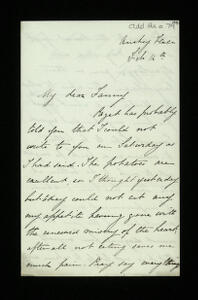 Add Ms a 7
Feb 14th
My dear Fanny
Paget has probably
told you that I could not
write to you on Saturday as
I had said. The potatoes are
excellent so I thought yesterday
but they could not eat any
my appetite having gone with
the renewed misery of the heart
after all not eating saves me
much pain. Pray say many things